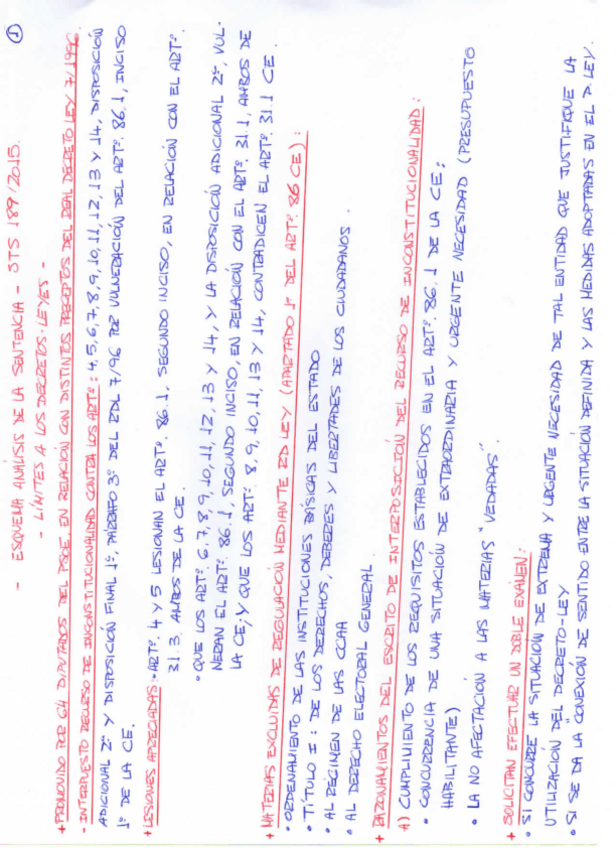 ①
- ESQUEMA ANÁLISIS DE LA SENTENCIA - STS 189/2015.
- LÍMITES A LOS DECRETOS-LEYES -
+ PROMOVIDO POR 64 DIPUTADOS DEL PSOE EN RELACIÓN CON DISTINTOS PRECEPTOS DEL REAL DECRETO LEY 7/1996.
- INTERPUESTO RECURSO DE INCONSTITUCIONALIDAD CONTRA LOS ARTº: 4,5,6,7,8,9,10,11,12,13 Y 14, DISPOSICIÓN
ADICIONAL 2º Y DISPOSICIÓN FINAL 1º, PÁRRAFO 3º DEL RDL 7/96 POR VULNERACIÓN DEL ARTº. 86.1, INCISO
1º DE LA CE.
+ LESIONES APRECIADAS: • ARTº. 4 Y 5 LESIONAN EL ARTº. 86.1, SEGUNDO INCISO, EN RELACIÓN CON EL ARTº.
31.3. AMBOS DE LA CE.
• QUE LOS ARTº. 6,7,8,9,10,11,12,13 Y 14, Y LA DISPOSICIÓN ADICIONAL 2º, VUL-
NERAN EL ARTº. 86.1, SEGUNDO INCISO, EN RELACIÓN CON EL ARTº. 31.1, AMBOS DE
LA CE; Y QUE LOS ARTº. 8,9,10,11,13 Y 14, CONTRADICEN EL ARTº. 31.1 CE.
+ MATERIAS EXCLUIDAS DE REGULACIÓN MEDIANTE RD LEY (APARTADO 1º DEL ARTº. 86 CE):
• ORDENAMIENTO DE LAS INSTITUCIONES BÁSICAS DEL ESTADO
• TÍTULO I: DE LOS DERECHOS, DEBERES Y LIBERTADES DE LOS CIUDADANOS.
• AL RÉGIMEN DE LAS CCAA
• AL DERECHO ELECTORAL GENERAL
+ RAZONAMIENTOS DEL ESCRITO DE INTERPOSICIÓN DEL RECURSO DE INCONSTITUCIONALIDAD:
A) CUMPLIMIENTO DE LOS REQUISITOS ESTABLECIDOS EN EL ARTº. 86.1 DE LA CE;
• CONCURRENCIA DE UNA SITUACIÓN DE EXTRAORDINARIA Y URGENTE NECESIDAD (PRESUPUESTO
HABILITANTE)
• LA NO AFECTACIÓN A LAS MATERIAS "VEDADAS"
+ SOLICITAN EFECTUAR UN DOBLE EXÁMEN:
• SI CONCURRE LA SITUACIÓN DE EXTREMA Y URGENTE NECESIDAD DE TAL ENTIDAD QUE JUSTIFIQUE LA
UTILIZACIÓN DEL DECRETO-LEY
• SI SE DA LA "CONEXIÓN DE SENTIDO ENTRE LA SITUACIÓN DEFINIDA Y LAS MEDIDAS ADOPTADAS EN EL D. LEY.